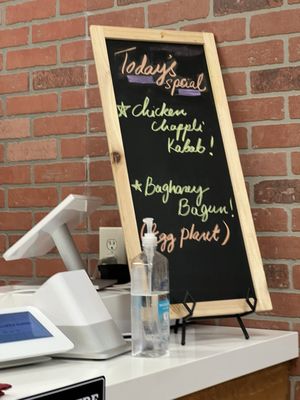 Today's
special
☆ Chicken
Chappli
Kabab!
☆ Bagharay
Bagun!
(Egg plant)